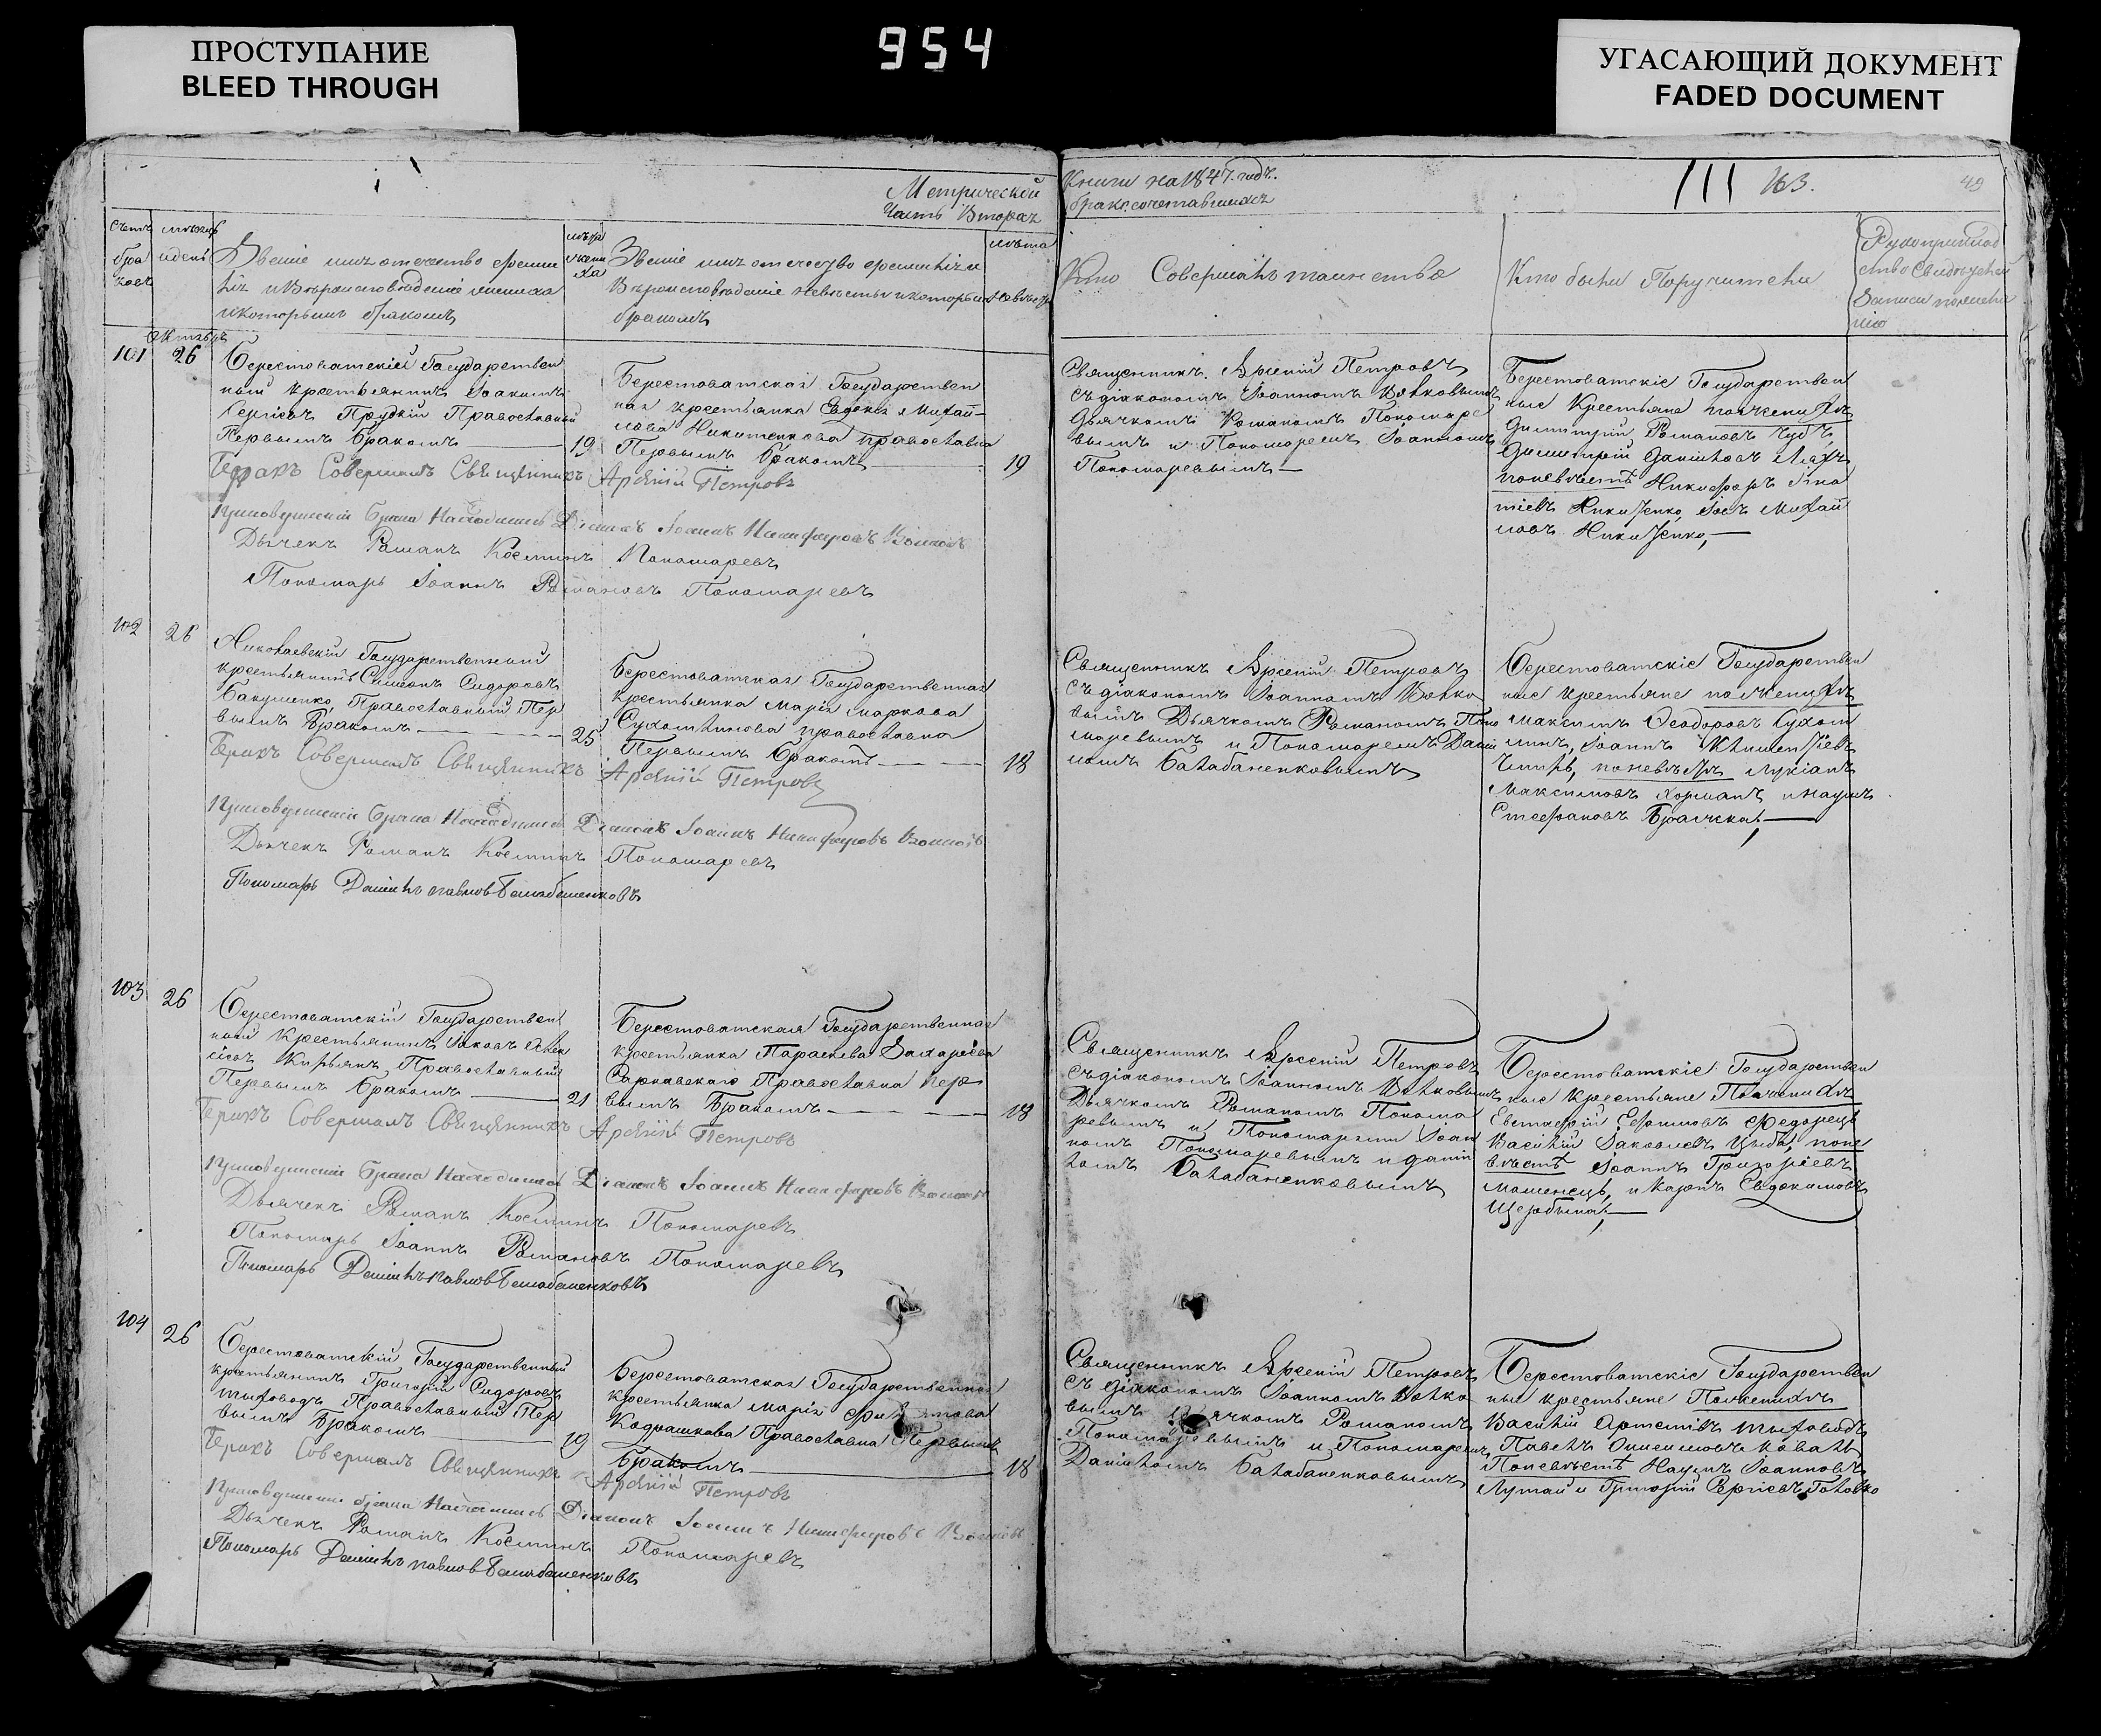 ПРОСТУПАНИЕ
BLEED THROUGH
954
УГАСАЮЩИЙ ДОКУМЕНТ
FADED DOCUMENT
Метрической
Часть Вторая
Книги на 1847. годъ.
бракосочетавшихся
111 163. 49
Счетъ
бра
ковъ
мѣсяцъ
и день
Званіе имя отечество фами
лія и Вѣроисповѣданіе жениха
и которымъ бракомъ
лѣта
жени
ха
Званіе имя отечество фамилія и
Вѣроисповѣданіе невѣсты и которымъ
бракомъ
лѣта
невѣсты
Кто Совершалъ таинство
Кто были Поручители
Рукоприклад
ство Свидѣтелей
Записи по желанію
Октябрь
101 26
Берестоватскій Государствен
ный крестьянинъ Іоакимъ
Сергіевъ Прудкій Православный
Первымъ бракомъ 19
Берестоватская Государствен
ная крестьянка Евдокія Михай-
лова Никитенкова православна
Первымъ бракомъ 19
Священникъ Арсеній Петровъ
съ діакономъ Іоанномъ Волковымъ
Дьячкомъ Романомъ Пономаре
вымъ и Пономаремъ Іоанномъ
Пономаревымъ
Берестоватскіе Государствен
ные Крестьяне по женихѣ
Димитрій Романовъ Чубъ,
Димитрій Даниловъ Ляхъ
по невѣстѣ Никифоръ Игна
тіевъ Никитенко, Іовъ Михай
ловъ Никитенко,
Бракъ Совершалъ Священникъ Арсеній Петровъ
При совершеніи брака Находились Діаконъ Іоаннъ Никифоровъ Волковъ
Дьячекъ Романъ Косминъ Пономаревъ
Пономарь Іоаннъ Романовъ Пономаревъ
102 26
Николаевскій Государственный
крестьянинъ Симеонъ Сидоровъ
Бакуменко, Православный Пер
вымъ бракомъ 25
Берестоватская Государственная
крестьянка Марія Маркова
Сухомлинова православна
Первымъ бракомъ 18
Священникъ Арсеній Петровъ
съ діакономъ Іоанномъ Волко
вымъ Дьячкомъ Романомъ Поно
маревымъ и Пономаремъ Дании
ломъ Балабаненковымъ
Берестоватскіе Государствен
ные крестьяне по женихѣ
Максимъ Феодоровъ Сухом
линъ, Іоаннъ Климентіевъ
по невѣстѣ Лукіанъ
Максимовъ и Наумъ
Стефановъ
Бракъ Совершалъ Священникъ Арсеній Петровъ
При совершеніи брака Находились Діаконъ Іоаннъ Никифоровъ Волковъ
Дьячекъ Романъ Косминъ Пономаревъ
Пономарь Даніилъ павловъ Балабаненковъ
103 26
Берестоватскій Государствен
ный Крестьянинъ Іаковъ Алек
сіевъ Кирьянъ Православный
Первымъ бракомъ 21
Берестоватская Государственная
крестьянка Параскева Захаріева
Православна пер
вымъ бракомъ 18
Священникъ Арсеній Петровъ
съ діакономъ Іоанномъ Волковымъ
Дьячкомъ Романомъ Понома
ревымъ и Пономарями Іоан
номъ Пономаревымъ и Даніи
ломъ Балабаненковымъ
Берестоватскіе Государствен
ные Крестьяне По женихѣ
Евстафій Ефимовъ Федорецъ
Василій Іаковлевъ Цыба, по не
вѣстѣ Іоаннъ Григоріевъ
и Карпъ Евдокимовъ
Щербына,
Бракъ Совершалъ Священникъ Арсеній Петровъ
При совершеніи брака Находились Діаконъ Іоаннъ Никифоровъ Волковъ
Дьячекъ Романъ Косминъ Пономаревъ
Пономарь Іоаннъ Романовъ Пономаревъ
Пономарь Даніилъ павловъ Балабаненковъ
104 26
Берестоватскій Государственный
крестьянинъ Григорій Сидоровъ
Православный Пер
вымъ бракомъ 19
Берестоватская Государственная
крестьянка Марія
Кодрашкова Православна Первымъ
бракомъ 18
Священникъ Арсеній Петровъ
съ діакономъ Іоанномъ Волко
вымъ Дьячкомъ Романомъ
Пономаревымъ и Пономаремъ
Даніиломъ Балабаненковымъ
Берестоватскіе Государствен
ные крестьяне По женихѣ
Василій Артемівъ
Павелъ Онисимовъ Коваль
По невѣстѣ Наумъ Іоанновъ
Лутай и Григорій Сергіевъ Головко
Бракъ Совершалъ Священникъ Арсеній Петровъ
При совершеніи брака Находились Діаконъ Іоаннъ Никифоровъ Волковъ
Дьячекъ Романъ Косминъ Пономаревъ
Пономарь Даніилъ павловъ Балабаненковъ